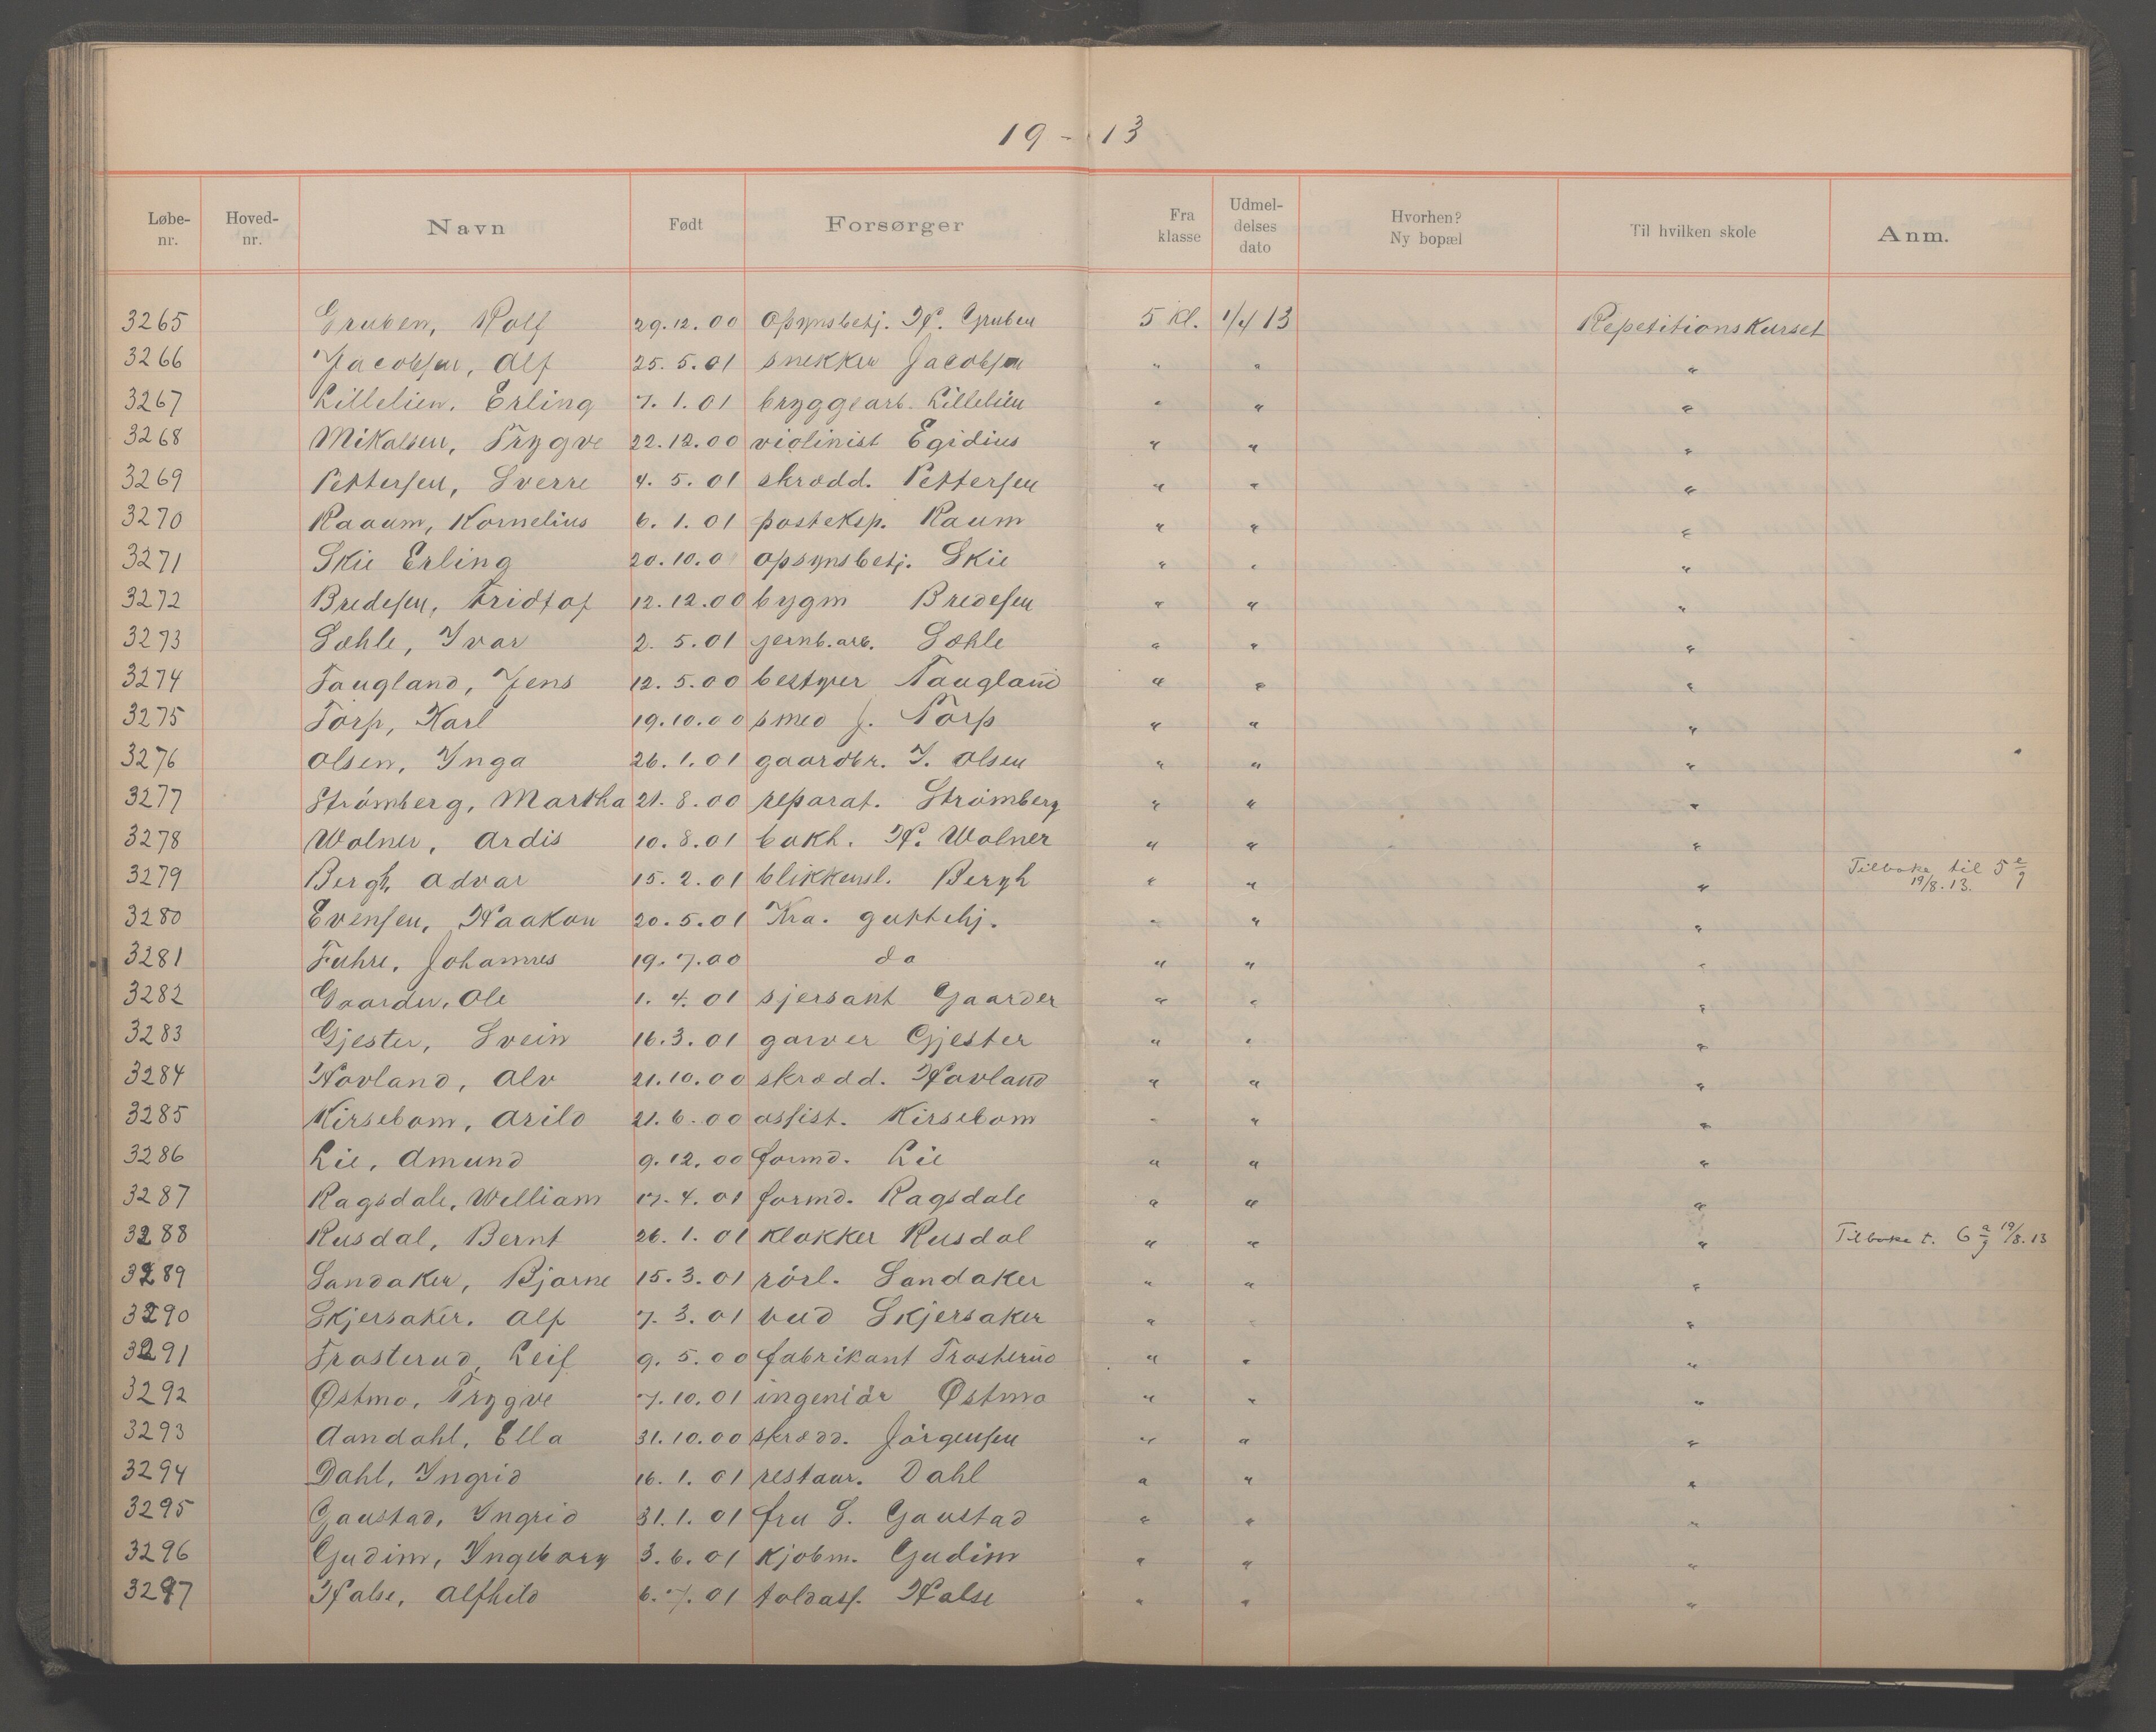 19-13
Løbe-nr. Hoved-nr. Navn Født Forsørger Fra klasse Udmel-delses dato Hvorhen? Ny bopæl Til hvilken skole Anm.
3265 Gruben, Rolf 29.12.00 Opsynsbetj. H. Gruben 5 kl. 1/4 13 Repetitionskurset
3266 Jacobsen, Alf 25.5.01 snekker Jacobsen " " "
3267 Lillelien, Erling 7.1.01 bryggearb. Lillelien " " "
3268 Mikalsen, Trygve 22.12.00 violinist Egidius " " "
3269 Pettersen, Sverre 4.5.01 skrædd. Pettersen " " "
3270 Raaum, Kornelius 6.1.01 posteksp. Raum " " "
3271 Skie Erling 20.10.0 opsynsbetj. Skie " " "
3272 Bredesen, Fridtof 12.12.00 bygm Bredesen " " "
3273 Sæhle, Ivar 2.5.01 jernb.arb. Sæhle " " "
3274 Taugland, Jens 12.5.00 bestyrer Taugland " " "
3275 Torp, Karl 19.10.00 smed J. Torp " " "
3276 Olsen, Inga 26.1.01 gaardbr. I. Olsen " " "
3277 Strömberg, Martha 21.8.00 reparat. Strömberg " " "
3278 Wolner, Ardis 10.8.01 bokh. H. Wolner " " "
3279 Bergh, Advar 15.2.01 blikkensl. Bergh " " " Tilbake til 5 e/g
19/8.13.
3280 Evensen, Haakon 20.5.01 Kra. guttehj. " " "
3281 Fuhre, Johannes 19.7.00 do " " "
3282 Gaarder, Ole 1.4.01 sjersant Gaarder " " "
3283 Gjester, Svein 16.3.01 garver Gjester " " "
3284 Hovland, Alv 21.10.00 skrædd. Hovland " " "
3285 Kirsebom, Arild 21.6.00 assist. Kirsebom " " "
3286 Lie, Amund 9.12.00 formd. Lie " " "
3287 Ragsdale, William 17.4.01 formd. Ragsdale " " "
3288 Rusdal, Bernt 26.1.01 klokker Rusdal " " " Tilbake t. 6 a/g 19/8.13
3289 Sandaker, Bjarne 15.3.01 rörl. Sandaker " " "
3290 Skjersaker, Alf 7.3.01 bud Skjersaker " " "
3291 Trosterud, Leif 9.5.00 fabrikant Trosterud " " "
3292 Østmo, Trygve 7.10.01 ingeniör Østmo " " "
3293 Aandahl, Ella 31.10.00 skrædd. Jörgensen " " "
3294 Dahl, Ingrid 16.1.01 restaur. Dahl " " "
3295 Gaustad, Ingrid 31.1.01 fru S. Gaustad " " "
3296 Gudim, Ingeborg 3.6.01 kjobm. Gudim " " "
3297 Halse, Alfhild 6.7.01 toldass. Halse " " "